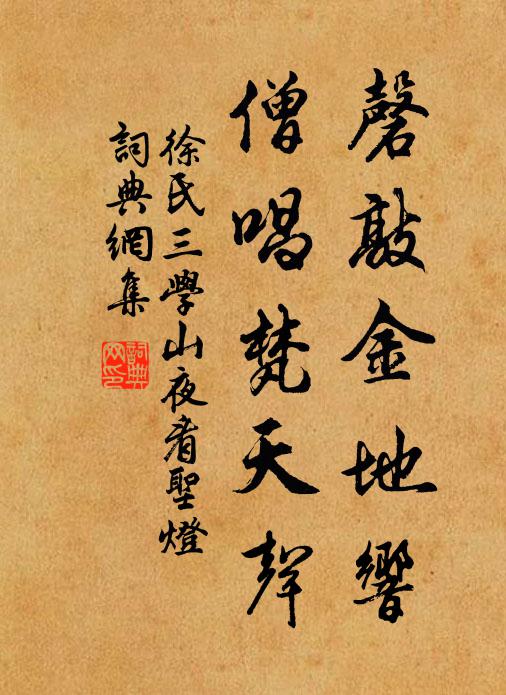 磬敲金地響
僧唱梵天聲
徐氏三學山夜看聖燈
詞典網集
詞典
网印